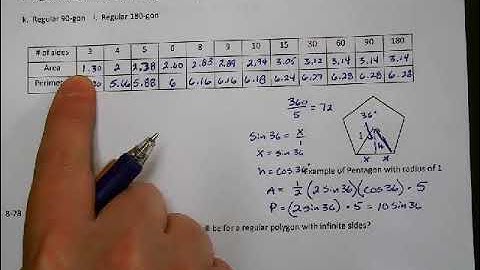 k. Regular 90-gon l. Regular 180-gon
# of sides 3 4 5 6 8 9 10 15 30 60 90 180
Area 1.30 2 2.38 2.60 2.83 2.89 2.94 3.05 3.12 3.14 3.14 3.14
Perime 5.66 5.88 6 6.16 6.18 6.24 6.27 6.28 6.28 6.28
360/5 = 72
36°
1
h
x x
sin 36 = x/1
x = sin 36
h = cos 36°
example of Pentagon with radius of 1
A = 1/2 (2 sin 36)(cos 36) · 5
P = (2 sin 36) · 5 = 10 sin 36
8-78
be for a regular polygon with infinite sides?